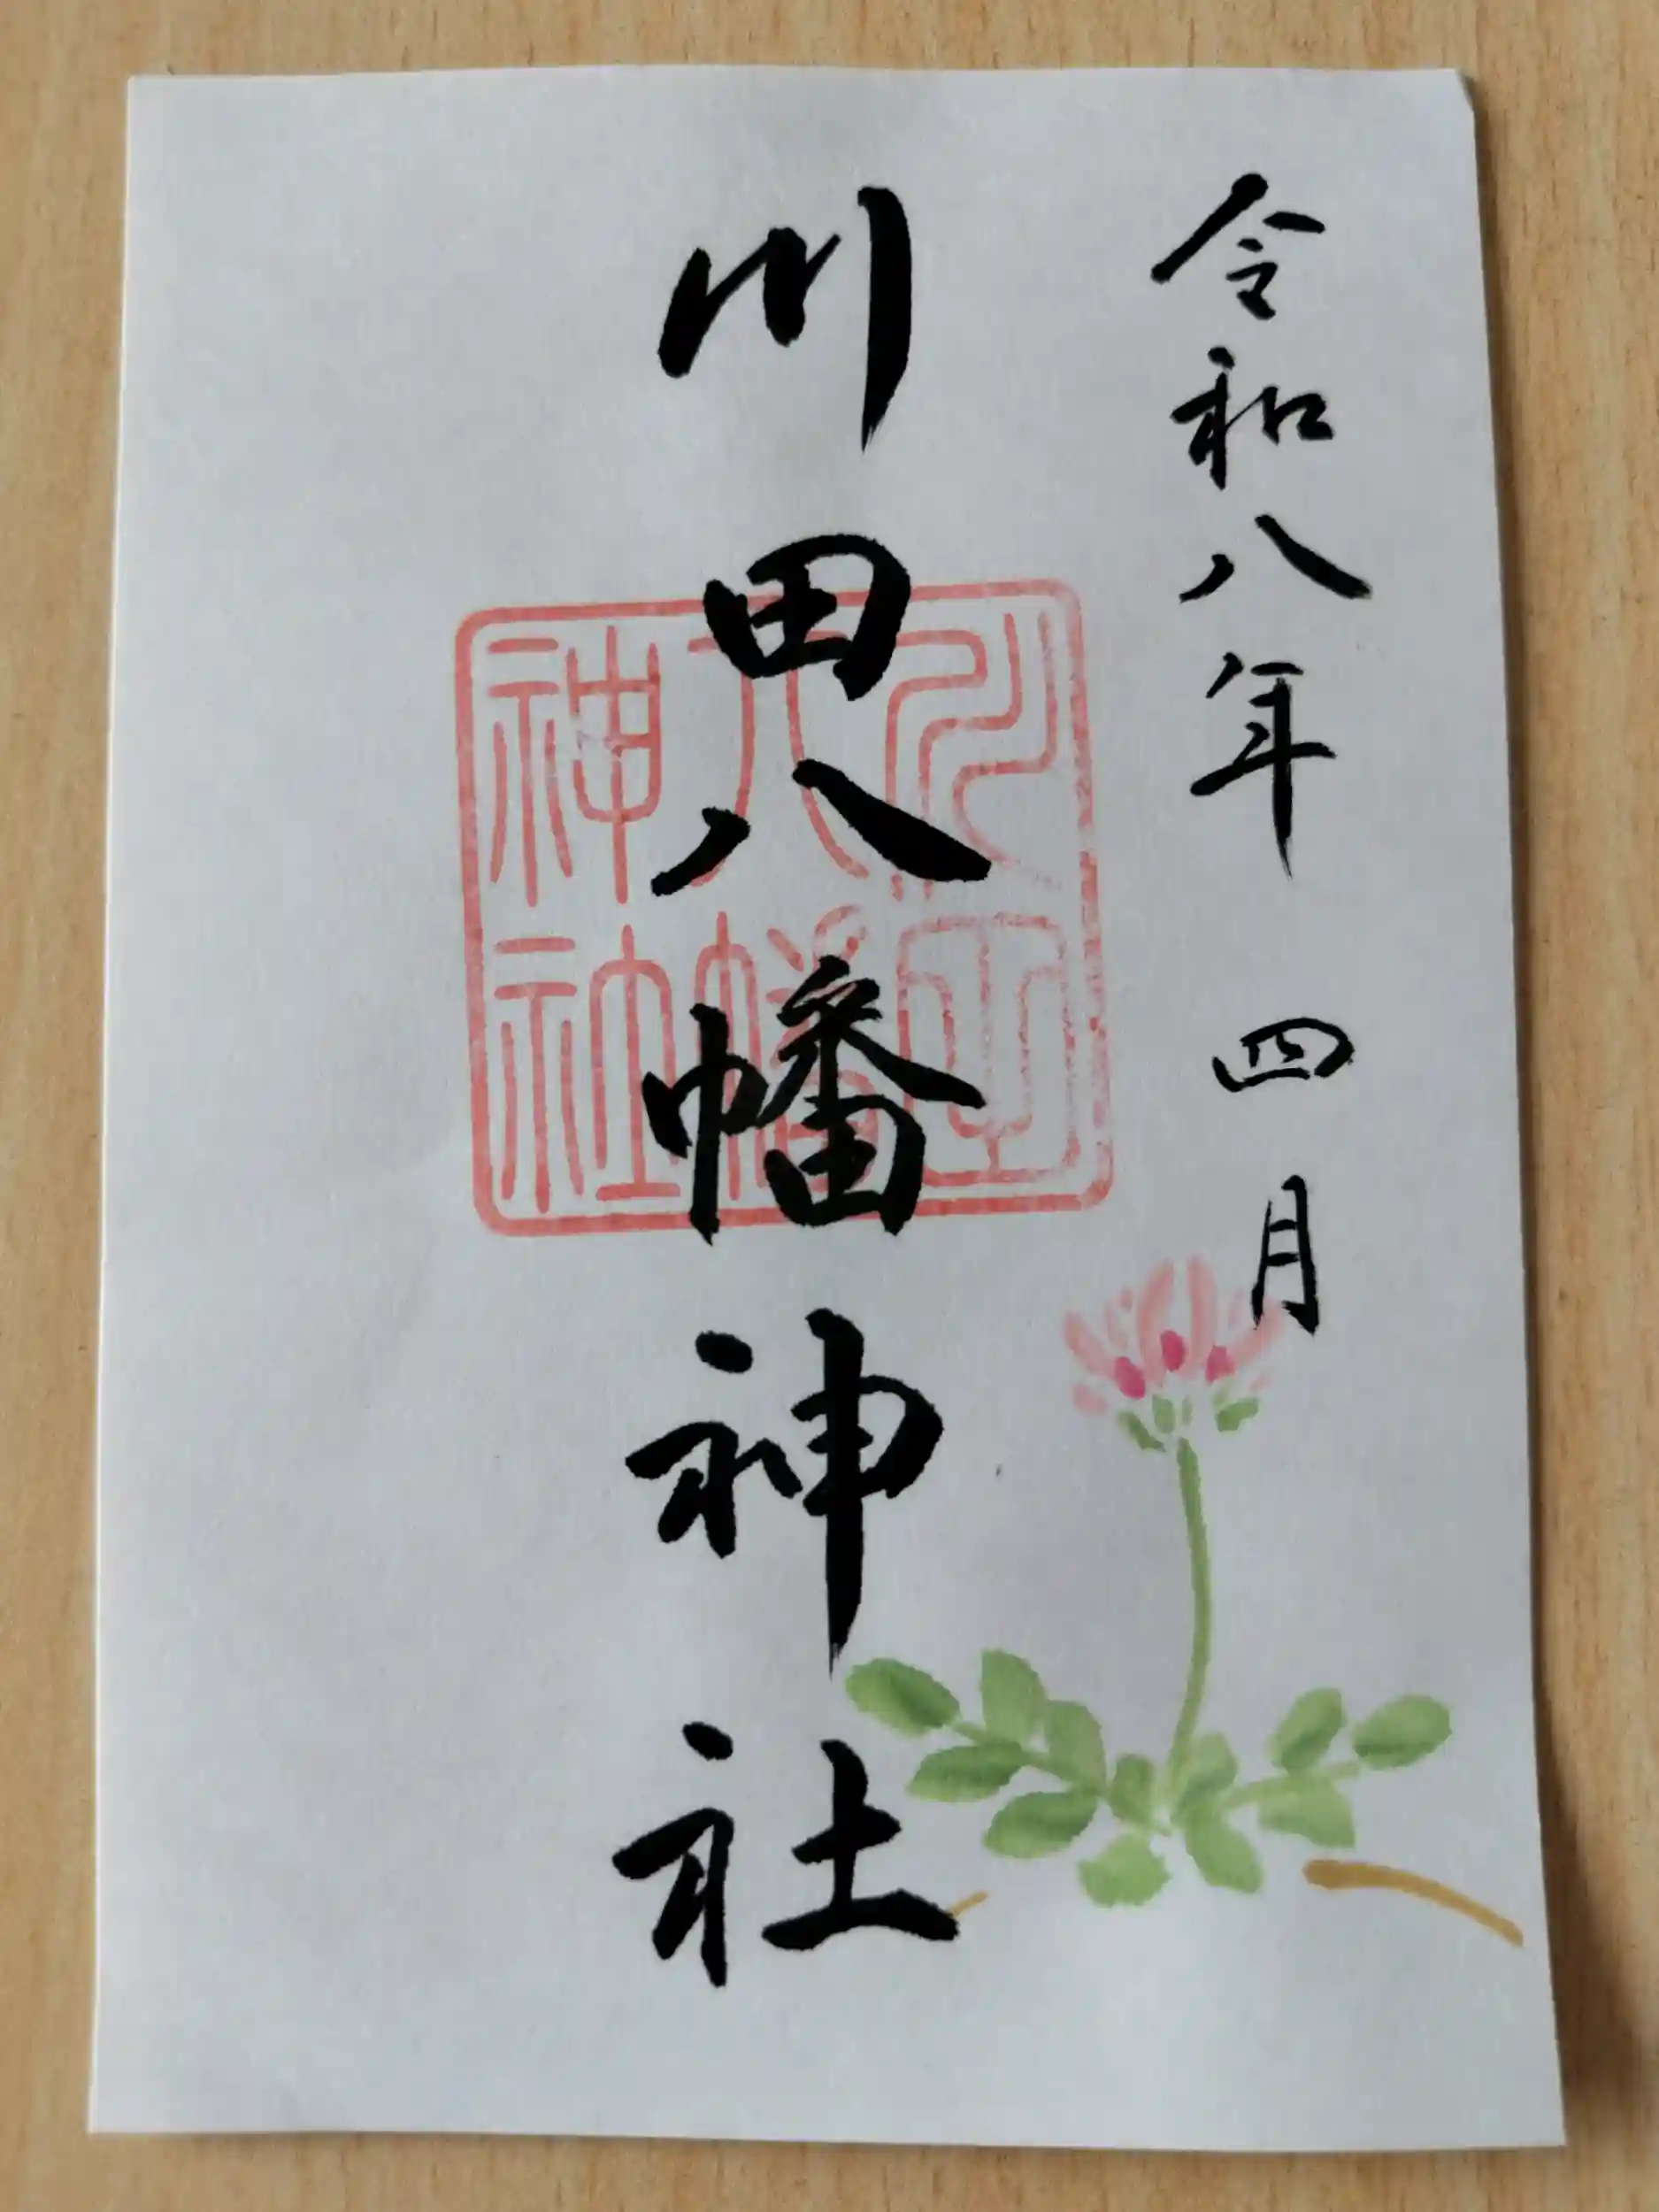 令和八年 四月
川田八幡神社
川田
八幡
神社